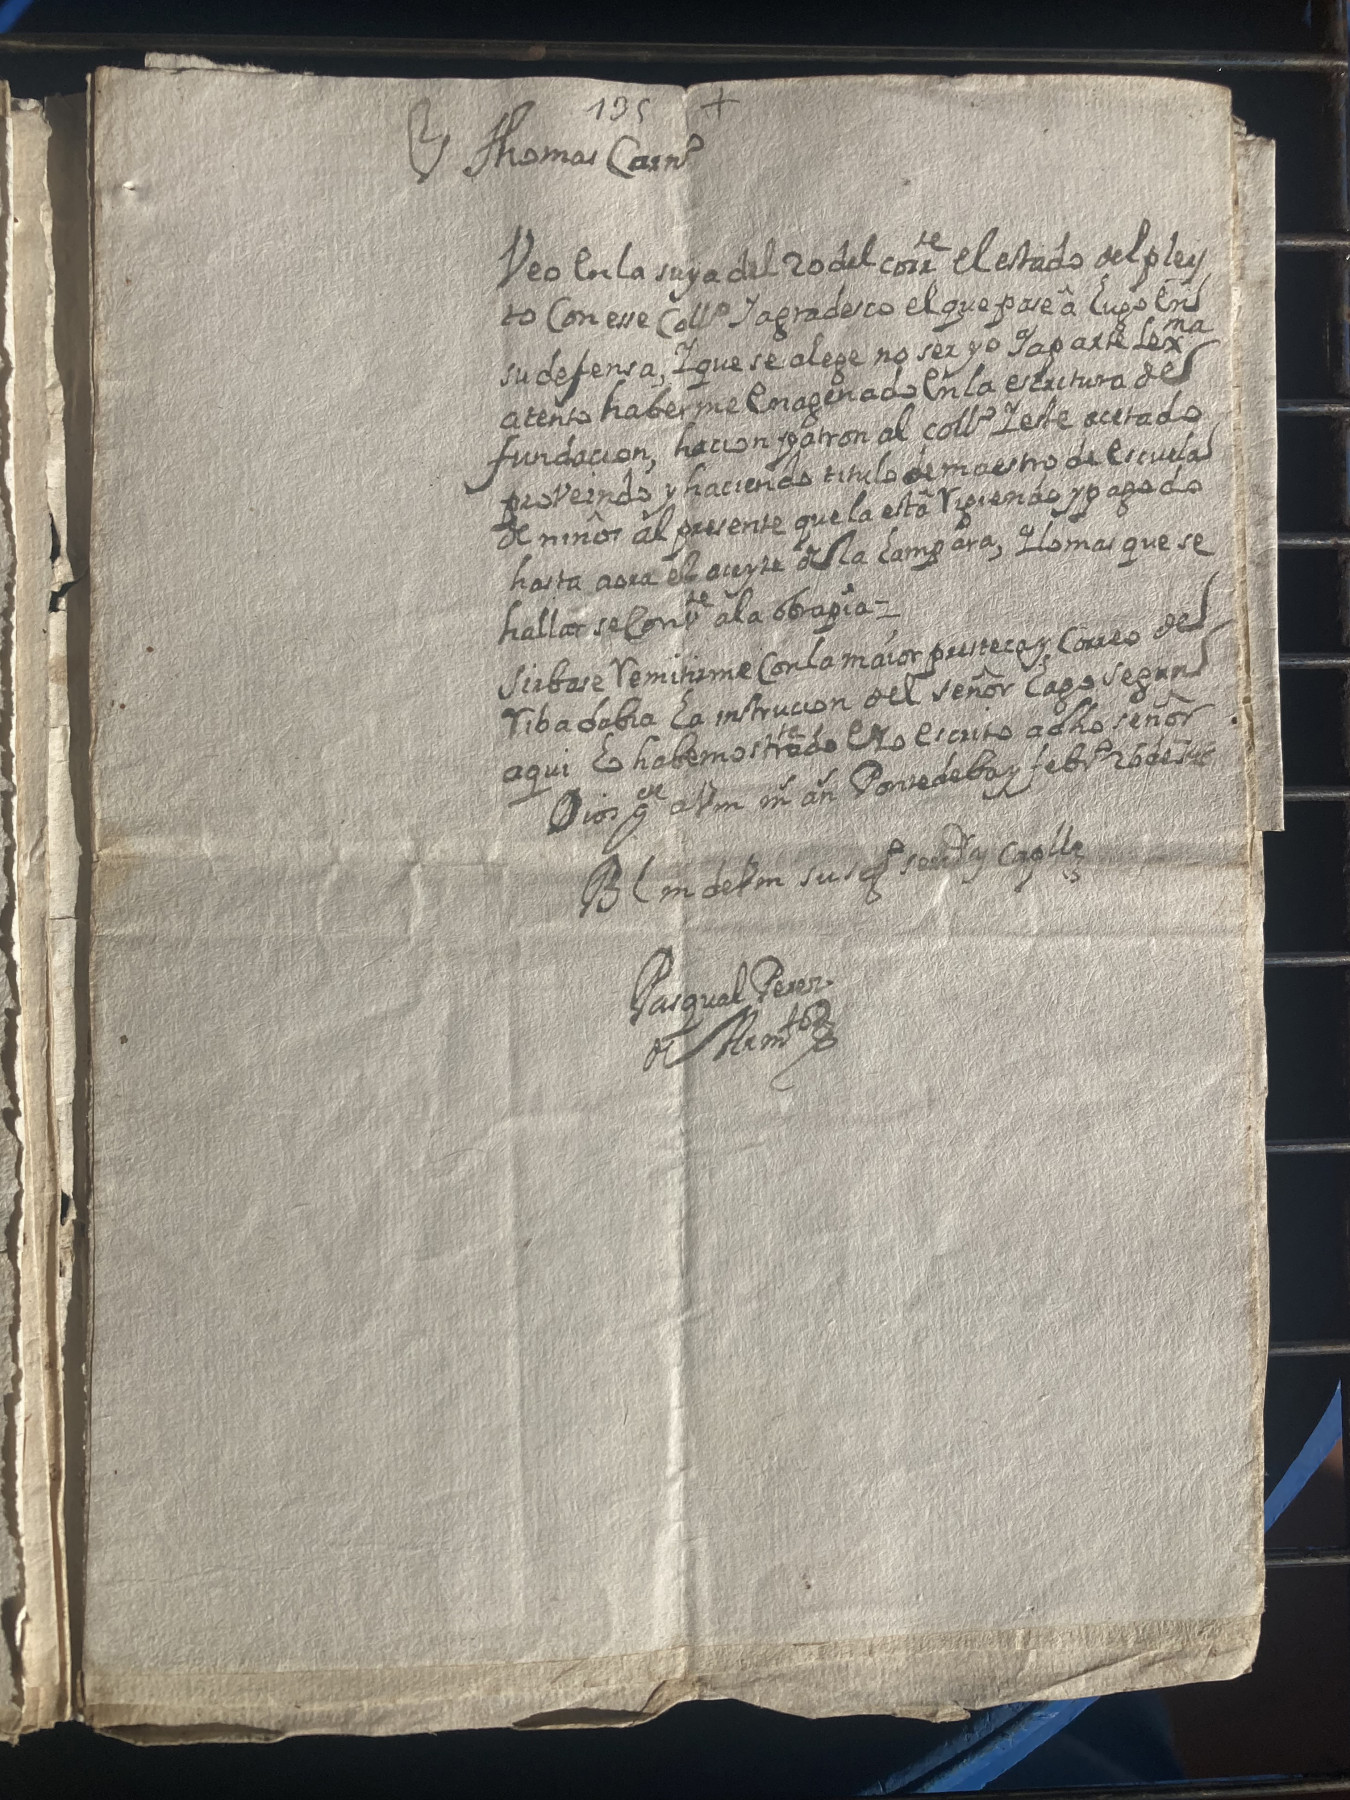 195 +
Thomas Carn^o
Veo en la suya del 20 del corr^te el estado del pley
to Con esse Coll^o Y agradesco el que pase â Lugo en
su defensa, Y que se alege no ser yo Ya parte lex^ma
atento haberme enagenado en la escritura de
fundacion, hacion patron al coll^o Y este acetado
proveindo y haciendo titulo de maestro de escuela
de niños al presente que la estâ rigiendo y pagado
hasta aora el aceyte de la lampara, Y lo mas que se
hallarse Con^te a la obrapia =
Sirbase remitirme Con la maior presteça y Correo de
ribadabia la instrucion del señor Lago segun
aqui lo habemos tratado escrito a dho señor
Dios g^de a Vm m^s a^s Pontedeba y feb^ro 26 de
B l m de Vm su s^o ser^or y Cap^lln
Pasqual Perez
de